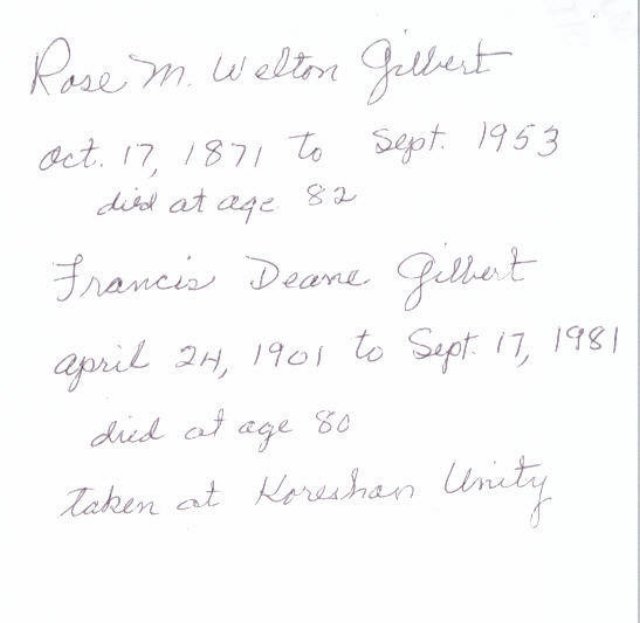 Rose M. Welton Gilbert
Oct. 17, 1871 to Sept. 1953
died at age 82
Francis Deane Gilbert
April 24, 1901 to Sept. 17, 1981
died at age 80
taken at Koreshan Unity